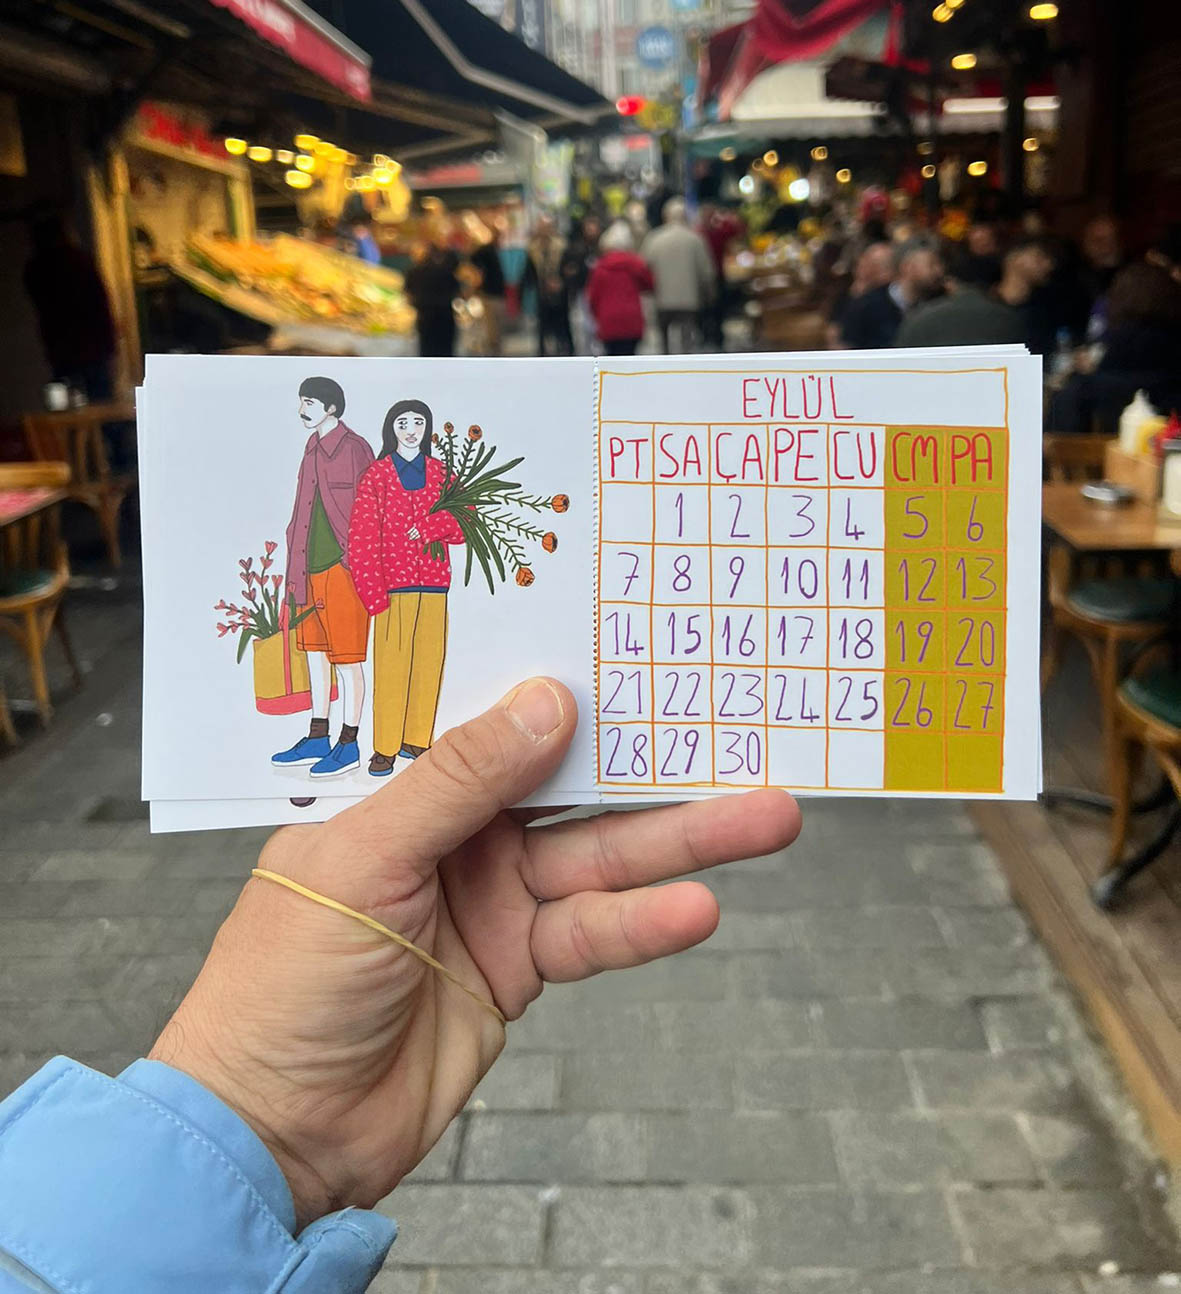 EYLÜL
PT SA ÇA PE CU CM PA
1 2 3 4 5 6
7 8 9 10 11 12 13
14 15 16 17 18 19 20
21 22 23 24 25 26 27
28 29 30